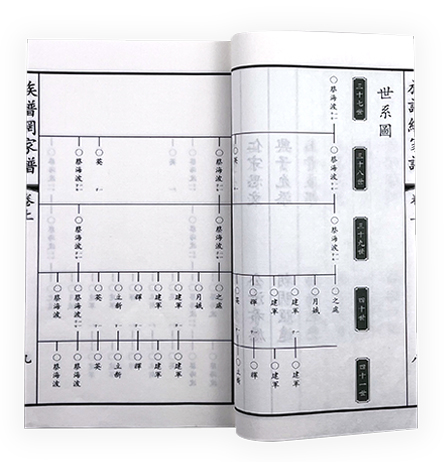 世系圖
三十七世
三十八世
三十九世
四十世
四十一世
蔡海波
蔡海波
蔡海波
之處
月娥
建軍
建軍
輝
英
建軍
建軍
輝
立新
族譜網家譜
卷上
九
蔡海波
英
蔡海波
蔡海波
蔡海波
之處
月娥
建軍
建軍
輝
立新
英
蔡海波
蔡海波
建軍
建軍
輝
立新
英
蔡海波
蔡海波